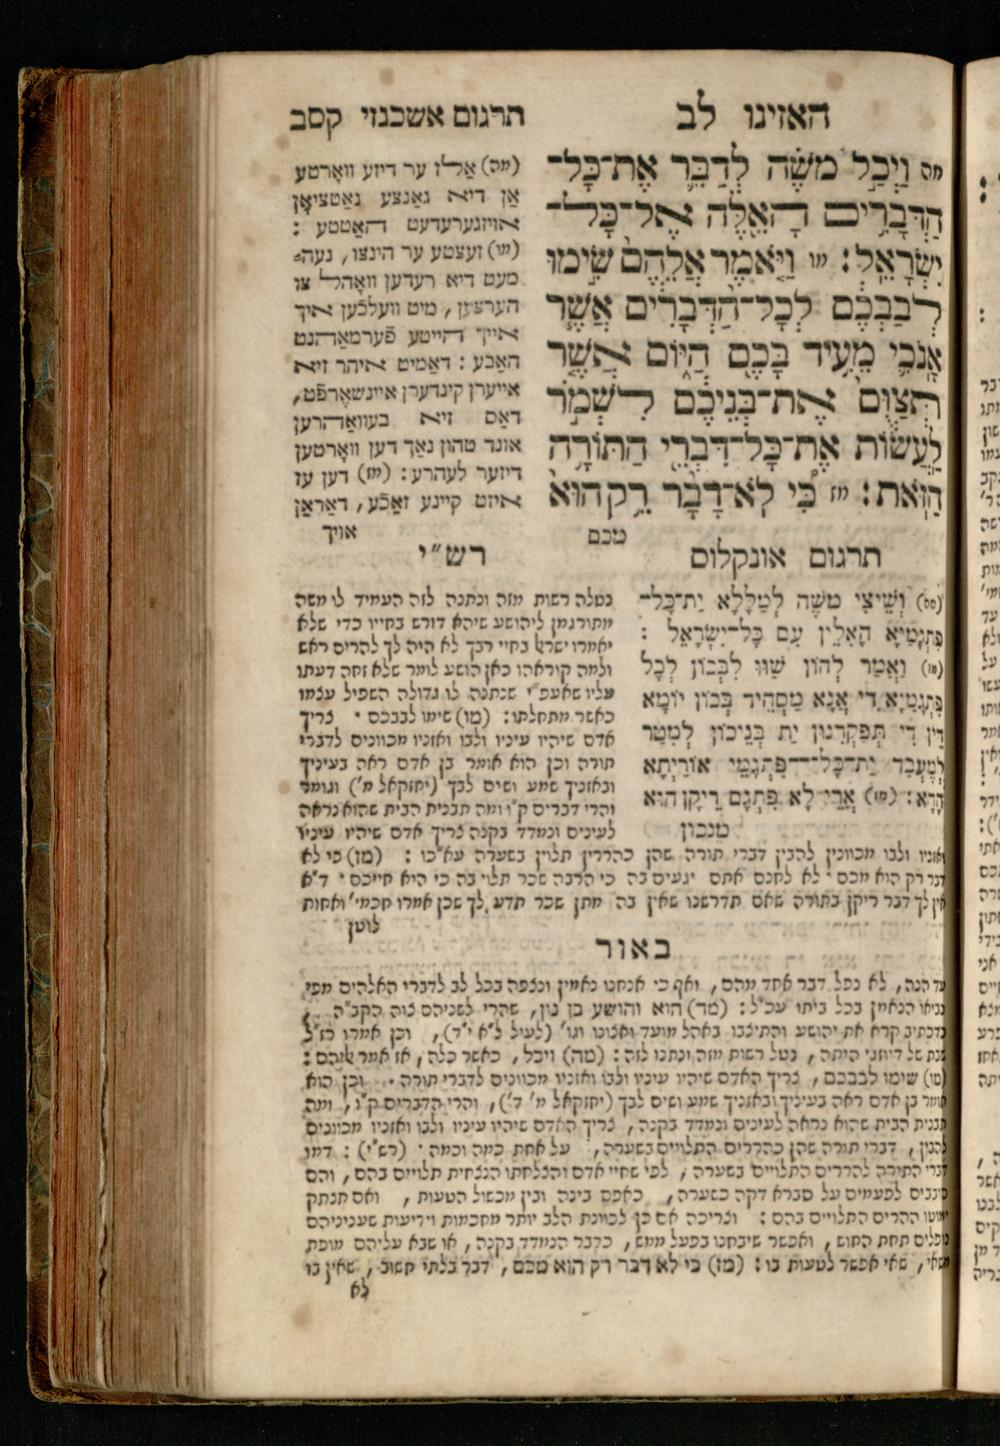 האזינו לב
תרגום אשכנזי קסב
מה וַיְכַל מֹשֶׁה לְדַבֵּר אֶת־כָּל־
הַדְּבָרִים הָאֵלֶּה אֶל־כָּל־
יִשְׂרָאֵל: מו וַיֹּאמֶר אֲלֵהֶם שִׂימוּ
לְבַבְכֶם לְכָל־הַדְּבָרִים אֲשֶׁר
אָנֹכִי מֵעִיד בָּכֶם הַיּוֹם אֲשֶׁר
תְּצַוֻּם אֶת־בְּנֵיכֶם לִשְׁמֹר
לַעֲשׂוֹת אֶת־כָּל־דִּבְרֵי הַתּוֹרָה
הַזֹּאת: מז כִּי לֹא־דָבָר רֵק הוּא
מכם
(מה) אַלזו ער דיזע ווארטע
אן דיא גאנצע נאטציאן
אויזגערעדעט האטטע:
(מו) זעצטע ער הינצו, נעה־
מעט דיא רעדען וואהל צו
הערצען, מיט וועלכען איך
אייך הייטע פערמאהנט
האבע: דאמיט איהר זיא
אייערן קינדערן איינשארפט,
דאס זיא בעוואהרען
אונד טהון נאך דען ווארטען
דיזער לעהרע: (מז) דען עז
איזט קיינע זאכע, דאראן
אויך
תרגום אונקלוס
(מה) וְשֵׁיצִי משֶׁה לְמַלָּלָא יַת־כָּל־
פִּתְגָמַיָּא הָאִלֵּין עִם כָּל־יִשְׂרָאֵל:
(מו) וַאֲמַר לְהוֹן שַׁוּוּ לִבְּכוֹן לְכָל
פִּתְגָמַיָּא דִי אֲנָא מַסְהֵיד בְּכוֹן יוֹמָא
דֵין דִי תְּפַקְּדִנּוּן יַת בְּנֵיכוֹן לְמִטַּר
לְמֶעְבַּד יַת־כָּל־פִּתְגָמֵי אוֹרַיְתָא
הָדָא: (מז) אֲרֵי לָא פִתְגָם רֵיקָן הוּא
מנכון
רש״י
נטלה רשות מזה ונתנה לזה העמיד לו משה
מתורגמן ליהושע שיהא דורש בחייו כדי שלא
יאמרו ישראל בחיי רבך לא היה לך להרים ראש
ולמה קוראהו כאן הושע לומר שלא זחה דעתו
עליו שאעפ״י שנתנה לו גדולה השפיל עצמו
כאשר מתחלתו: (מו) שימו לבבכם · צריך
אדם שיהיו עיניו ולבו ואזניו מכוונים לדברי
תורה וכן הוא אומר בן אדם ראה בעיניך
ובאזניך שמע ושים לבך (יחזקאל מ׳) וגומר
והרי דברים ק״ו ומה תבנית הבית שהוא נראה
לעינים ונמדד בקנה צריך אדם שיהיו עיניו
ואזניו ולבו מכוונין להבין דברי תורה שהן כהררין תלוין בשערה עאכ״ו: (מז) כי לא
דבר רק הוא מכם · לא לחנם אתם יגעים בה כי הרבה שכר תלוי בה כי היא חייכם · ד״א
אין לך דבר ריקן בתורה שאם תדרשנו שאין בה מתן שכר תדע לך שכן אמרו חכמי׳ ואחות
לוטן
באור
עד הנה, לא נפל דבר אחד מהם, ואף כי אנחנו נאמין ונצפה בכל לב לדברי האלהים מפי
נביאו הנאמן בכל ביתו עכ״ל: (מד) הוא והושע בן נון, שהרי לשניהם צוה הקב״ה,
כדכתיב קרא את יהושע והתיצבו באהל מועד ואצונו וגו׳ (לעיל ל״א י״ד), וכן אמרו רז״ל
שבת של דיוזגי היתה, נטל רשות מזה ונתנו לזה: (מה) ויכל, כאשר כלה, אז אמר להם:
(מו) שימו לבבכם, צריך האדם שיהיו עיניו ולבו ואזניו מכוונים לדברי תורה · וכן הוא
אומר בן אדם ראה בעיניך ובאזניך שמע ושים לבך (יחזקאל מ׳ ד׳), והרי הדברים ק״ו, ומה
תבנית הבית שהוא נראה לעינים ונמדד בקנה, צריך האדם שיהיו עיניו ולבו ואזניו מכוונים
להבין, דברי תורה שהן כהררים התלויים בשערה, על אחת כמה וכמה · (רש״י): דמו
דברי התורה להררים התלויים בשערה, לפי שחיי אדם והצלחתו הנצחית תלויים בהם, והם
סובבים לפעמים על סברא דקה כשערה, כאפס בינה ובין מכשול הטעות, ואם תנתק
ימוטו ההרים התלויים בהם: וצריכה אם כן לכוונת הלב יותר מחכמות וידיעות שעניניהם
נופלים תחת החוש, ואפשר שיבחנו בפעל ממש, כדבר הנמדד בקנה, או שבא עליהם מופת
שאי אפשר לטעות בו: (מז) כי לא דבר רק הוא מכם, דבר בלתי חשוב, שאין בו
לא